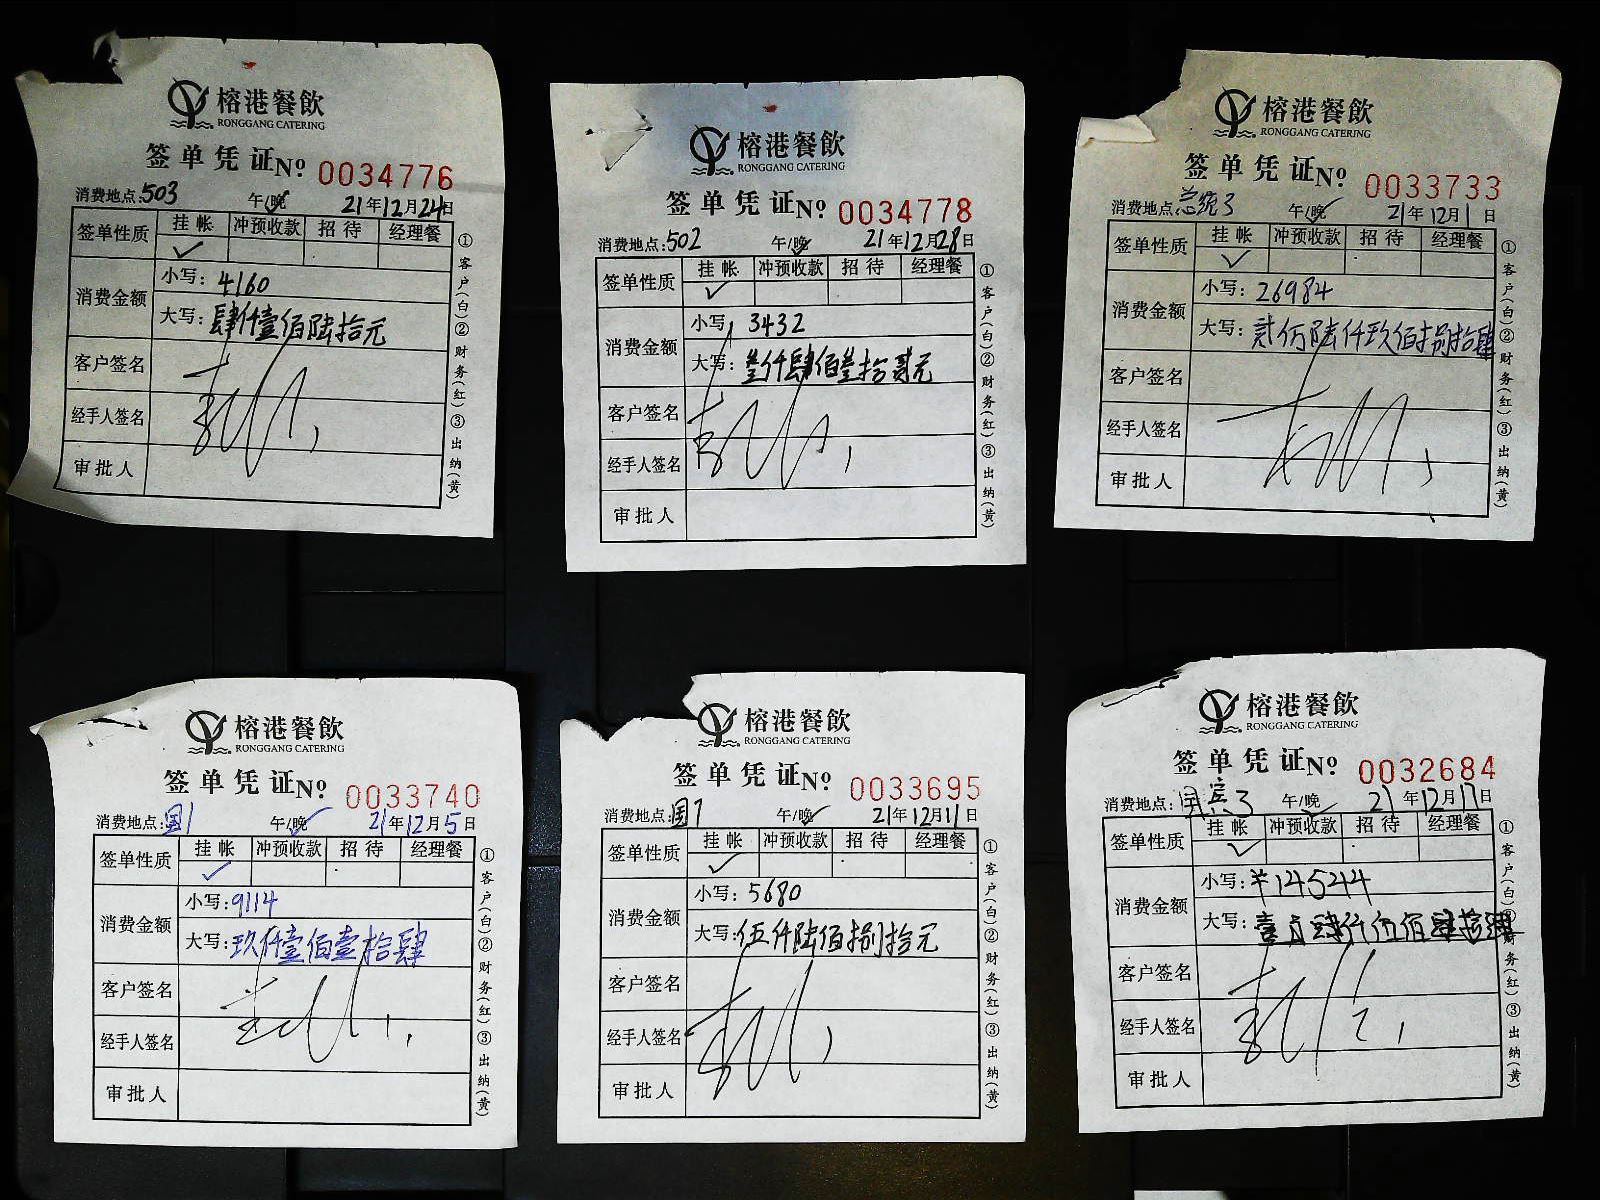 榕港餐飲
RONGGANG CATERING
签单凭证№ 0034776
消费地点:503 午/晚 21年12月24日
签单性质 挂帐 冲预收款 招待 经理餐
✓
消费金额 小写: 4160
大写: 肆仟壹佰陆拾元
客户签名
经手人签名
审批人
①客户(白)②财务(红)③出纳(黄)
榕港餐飲
RONGGANG CATERING
签单凭证№ 0034778
消费地点:502 午/晚 21年12月28日
签单性质 挂帐 冲预收款 招待 经理餐
✓
消费金额 小写: 3432
大写: 叁仟肆佰叁拾贰元
客户签名
经手人签名
审批人
①客户(白)②财务(红)③出纳(黄)
榕港餐飲
RONGGANG CATERING
签单凭证№ 0033733
消费地点:总统3 午/晚 21年12月1日
签单性质 挂帐 冲预收款 招待 经理餐
✓
消费金额 小写: 26984
大写: 贰万陆仟玖佰捌拾肆
客户签名
经手人签名
审批人
①客户(白)②财务(红)③出纳(黄)
榕港餐飲
RONGGANG CATERING
签单凭证№ 0033740
消费地点:国1 午/晚 21年12月5日
签单性质 挂帐 冲预收款 招待 经理餐
✓
消费金额 小写: 9114
大写: 玖仟壹佰壹拾肆
客户签名
经手人签名
审批人
①客户(白)②财务(红)③出纳(黄)
榕港餐飲
RONGGANG CATERING
签单凭证№ 0033695
消费地点:国7 午/晚 21年12月11日
签单性质 挂帐 冲预收款 招待 经理餐
✓
消费金额 小写: 5680
大写: 伍仟陆佰捌拾元
客户签名
经手人签名
审批人
①客户(白)②财务(红)③出纳(黄)
榕港餐飲
RONGGANG CATERING
签单凭证№ 0032684
消费地点:国宾3 午/晚 21年12月17日
签单性质 挂帐 冲预收款 招待 经理餐
✓
消费金额 小写: ¥14544
大写: 壹万肆仟伍佰肆拾肆
客户签名
经手人签名
审批人
①客户(白)②财务(红)③出纳(黄)